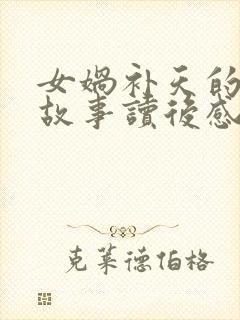 女媧补天的
故事讀後感
克莱德伯格